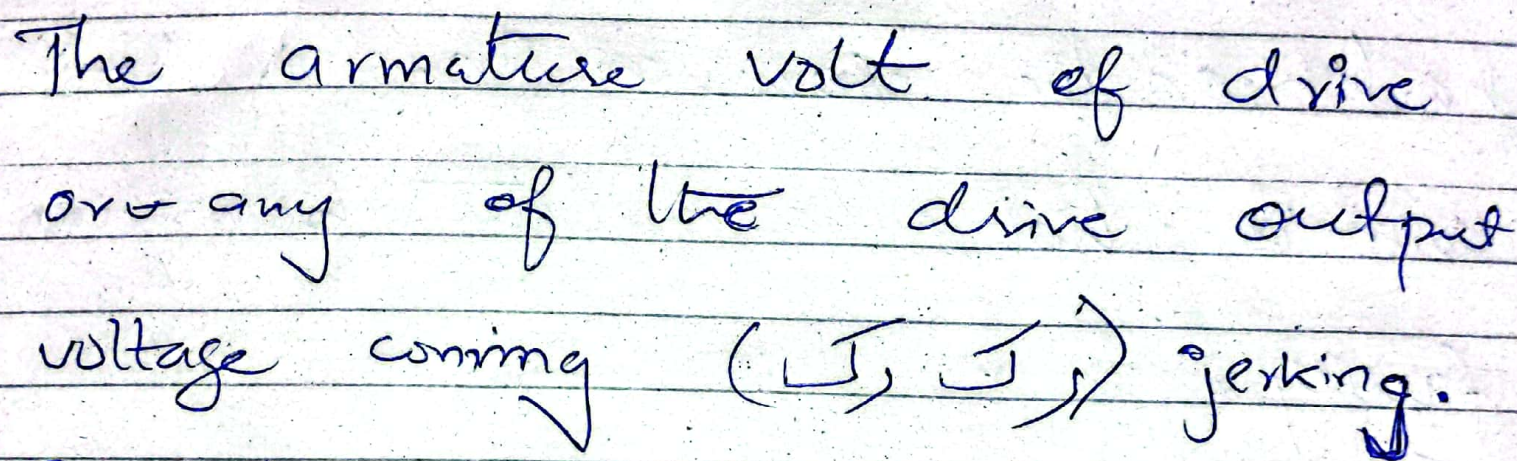 The armature volt of drive
or any of the drive output
voltage coming (رک رک) jerking.